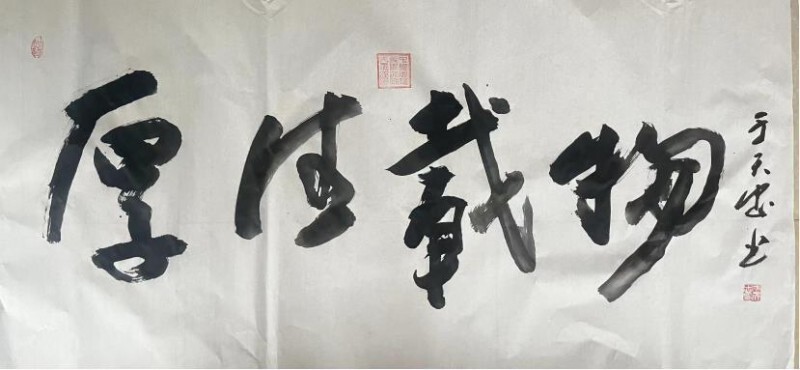 厚德载物
于天安书